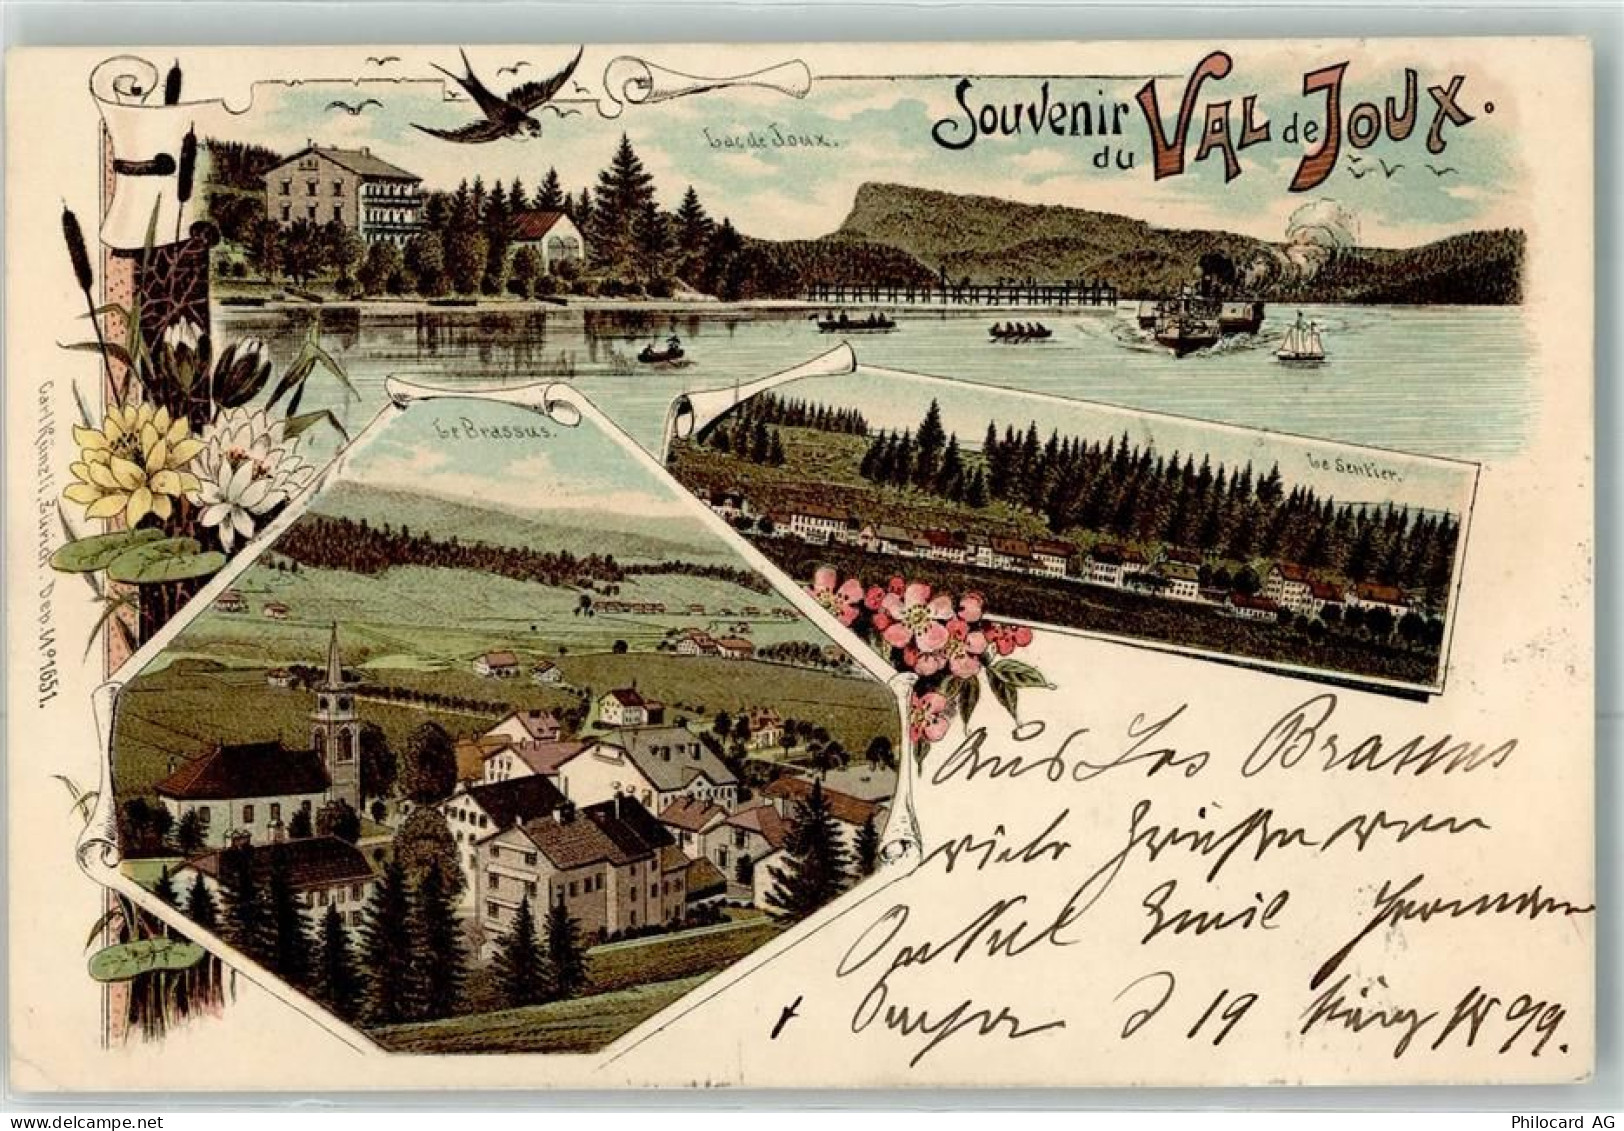 Souvenir
du VAL de JOUX.
Lac de Joux.
Le Brassus.
Le Sentier.
Carl Künzli, Zürich. Dep. No 1651.
Aus Les Brassus
viele Grüße von
Onkel Emil
19 März 1899.
Philocard AG